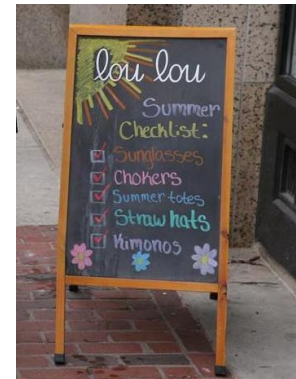 lou lou
Summer
Checklist:
Sunglasses
Chokers
Summer totes
Straw hats
Kimonos